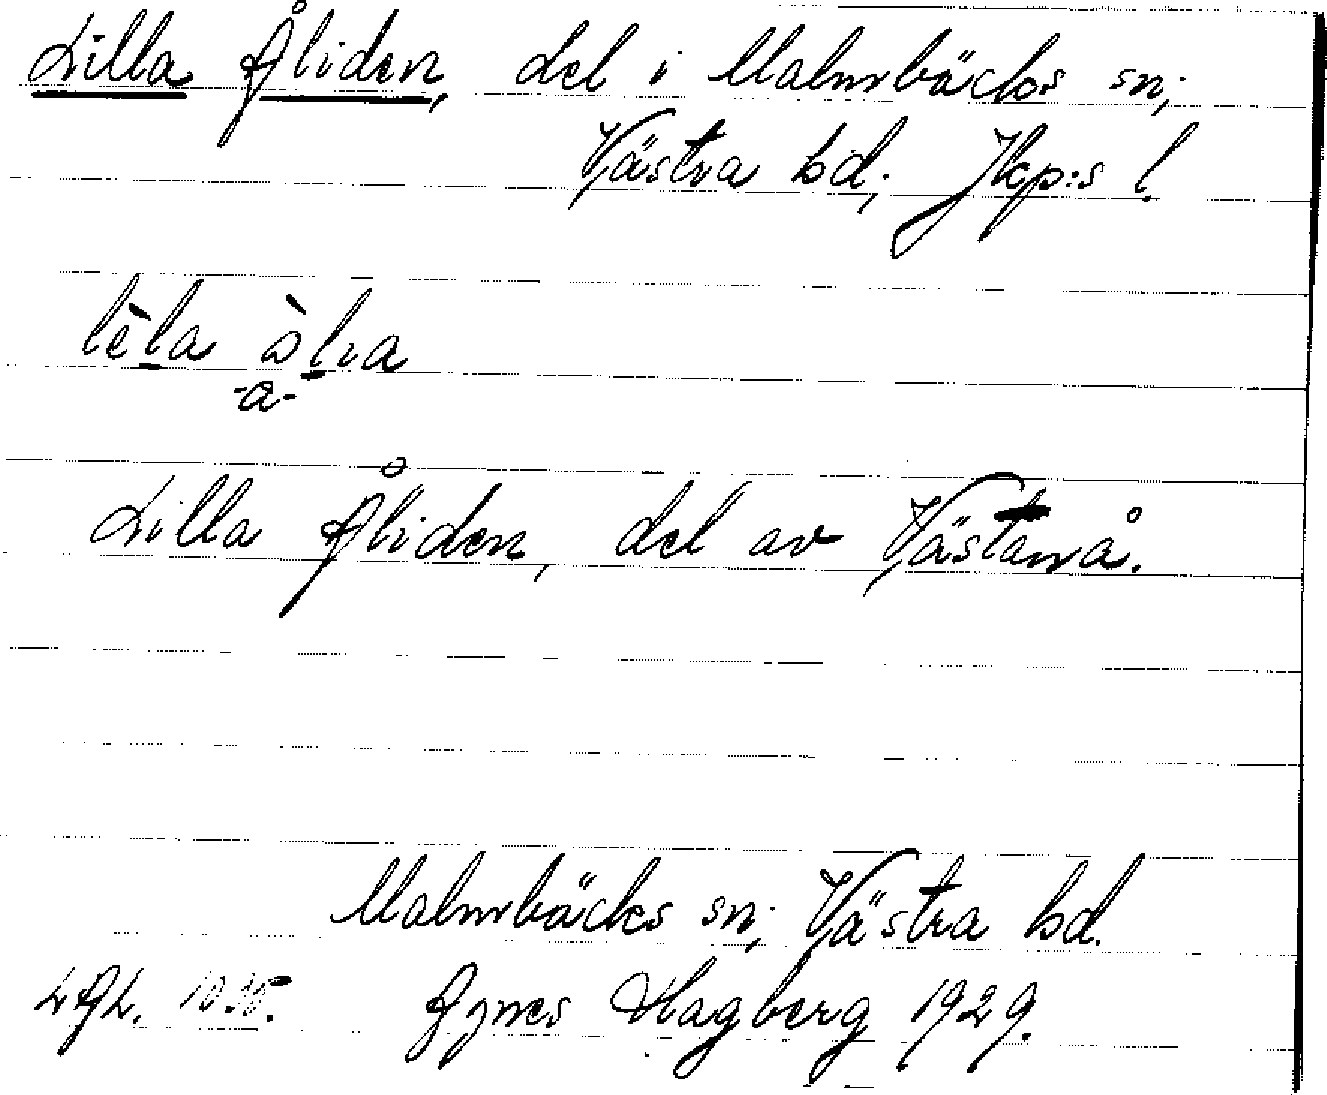 Lilla Åliden, del i Malmbäcks sn;
Västra hd; Jkp:s l.
lèla òlia
-a-
Lilla Åliden, del av Västanå.
Malmbäcks sn; Västra hd.
Agnes Hagberg 1929.